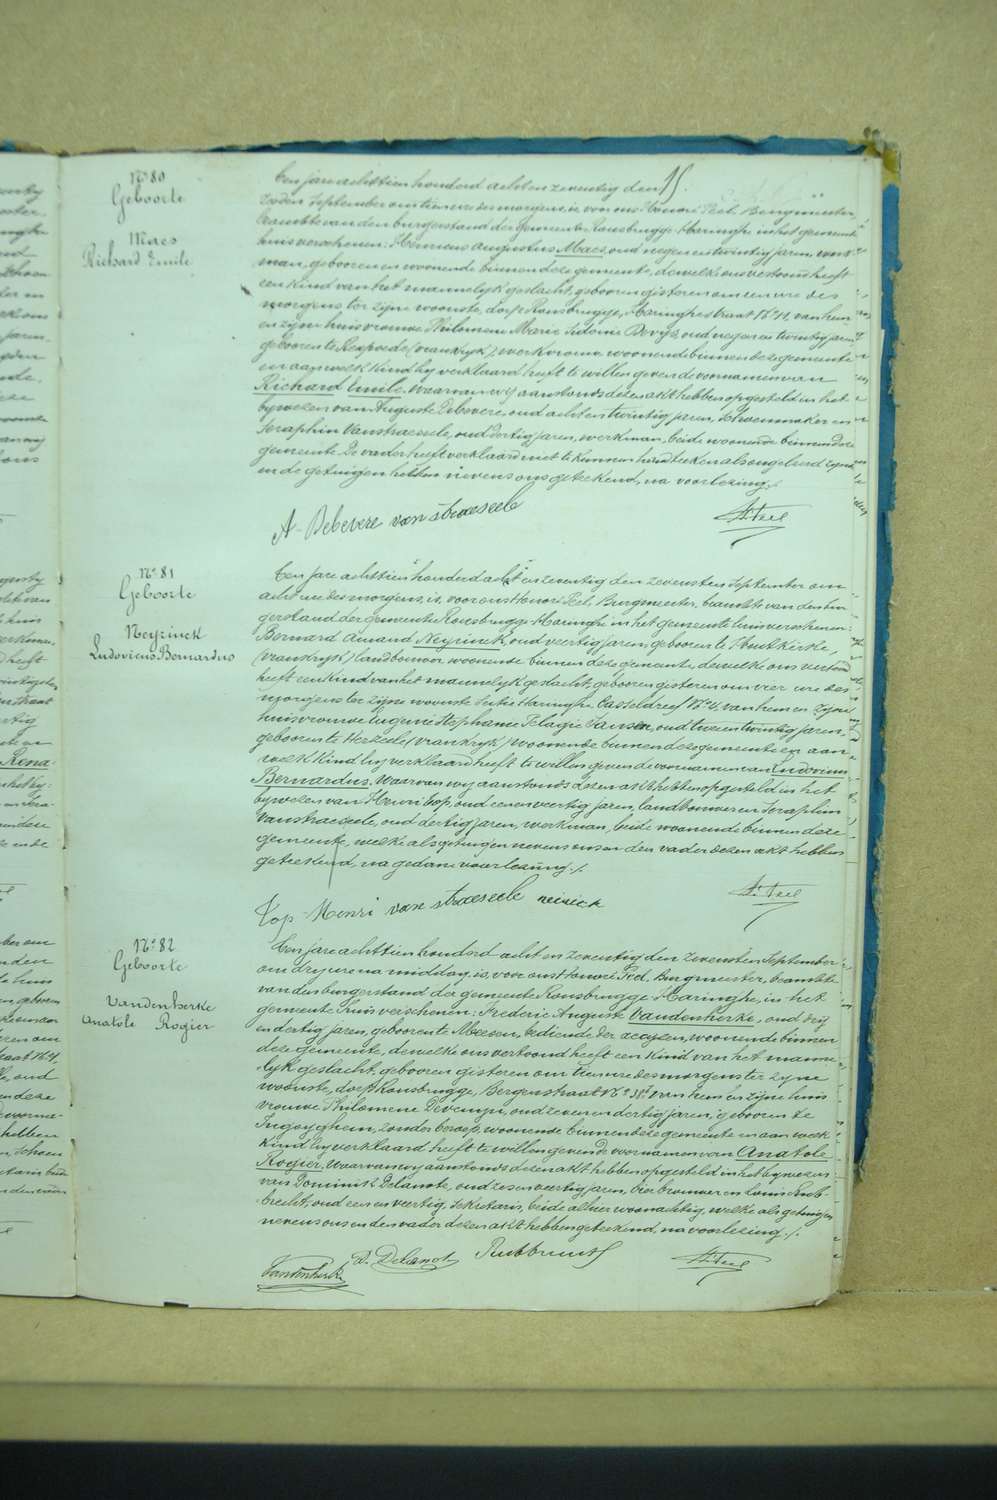 N° 80
Geboorte
Maes
Richard Emile
Een jare achttien honderd acht en zeventig den 15.
zesden September om tien ure des morgens, is voor ons Honoré Peel, Burgmeester,
beambte van den burgerstand der gemeente Rousbrugge Haringhe in het gemeente
huis verschenen: Henricus Augustus Maes, oud negen en twintig jaren, werk
man, geboren en woonende binnen deze gemeente, dewelke ons vertoond heeft
een kind van het mannelijk geslacht, geboren gisteren om een ure des
morgens ter zyne woonste, dorp Rousbrugge, Haringhestraat N° 11, van hem
en zyne huisvrouwe Philomene Marie Sidonie Devys, oud negen en twintig jaren,
geboren te Rexpoede (vrankryk), werkvrouw, woonende binnen deze gemeente
en aan welk kind hy verklaard heeft te willen geven de voornamen van
Richard Emile. Waarvan wy aanstonds dezen akt hebben opgesteld in het
bywezen van Auguste Debevere, oud acht en twintig jaren, schoenmaker en
Seraphin Vanstraeseele, oud dertig jaren, werkman, beide woonende binnen deze
gemeente. De vader heeft verklaard niet te kunnen handteeken als ongeleerd zynde
en de getuigen hebben nevens ons geteekend, na voorlezing./.
A Debevere van straeseele
H. Peel
N° 81
Geboorte
Neyrinck
Ludovicus Bernardus
Een jare achttien honderd acht en zeventig den zevensten September om
acht ure des morgens, is, voor ons Honoré Peel, Burgmeester, beambte van den bur
gerstand der gemeente Rousbrugge Haringhe in het gemeente huis verschenen:
Bernard Amand Neyrinck, oud veertig jaren, geboren te Houtkerke,
(vrankryk) landbouwer woonende binnen deze gemeente, dewelke ons vertoond
heeft een kind van het mannelyk geslacht, geboren gisteren om vier ure des
morgens ter zyne woonste Sectie Haringhe Casteeldreef N° 4 van hem en zyne
huisvrouwe Eugenie Stephanie Pelagie Jansen, oud twee en twintig jaren,
geboren te Herzeele (vrankryk) woonende binnen deze gemeente en aan
welk kind hy verklaard heeft te willen geven de voornamen van Ludovicus
Bernardus. Waarvan wy aanstonds dezen akt hebben opgesteld in het
bywezen van Henri Top, oud een en veertig jaren, landbouwer en Seraphin
Vanstraeseele, oud dertig jaren, werkman, beide woonende binnen deze
gemeente, welke als getuigen nevens ons en den vader dezen akt hebben
geteekend, na gedane voorlezing./.
Top Henri van straeseele neirick
H. Peel
N° 82
Geboorte
Vandenherke
Anatole Rogier
Een jare achttien honderd acht en zeventig den zevensten September
om dry ure na middag, is, voor ons Honoré Peel, Burgmeester, beambte
van den burgerstand der gemeente Rousbrugge Haringhe, in het
gemeente huis verschenen: Frederic Auguste Vandenherke, oud dry
en dertig jaren, geboren te Meesen, bediende der accyzen, woonende binnen
deze gemeente, dewelke ons vertoond heeft een kind van het manne
lyk geslacht, geboren gisteren om tien ure des morgens ter zyne
woonste, dorp Rousbrugge, Bergenstraat N° van hem en zyne huis
vrouwe Philomene Devempi, oud zeven en dertig jaren, geboren te
Ingoyghem, zonder beroep, woonende binnen deze gemeente en aan welk
kind hy verklaard heeft te willen geven de voornamen van Anatole
Rogier, Waarvan wy aanstonds dezen akt hebben opgesteld in het bywezen
van Dominik Delanote, oud zes en veertig jaren, bierbrouwer en Louis Rub-
brecht, oud een en veertig, sekretaris, beide alhier woonachtig, welke als getuigen
nevens ons en den vader dezen akt hebben geteekend, na voorlezing./.
Vandenherke D. Delanote Rubbrecht
H. Peel